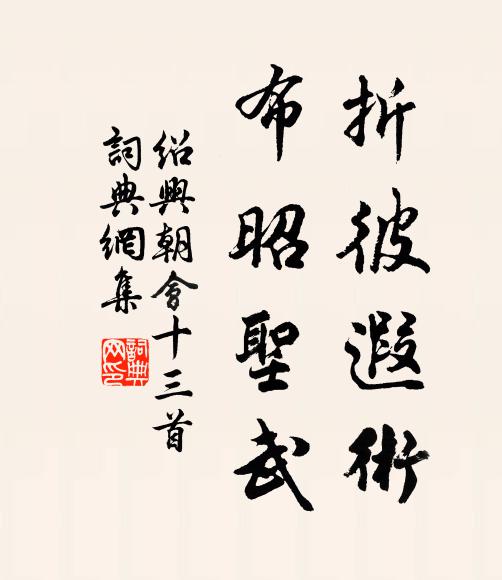 折彼遐術
布昭聖武
紹興朝會十三首
詞典網集
詞典網印